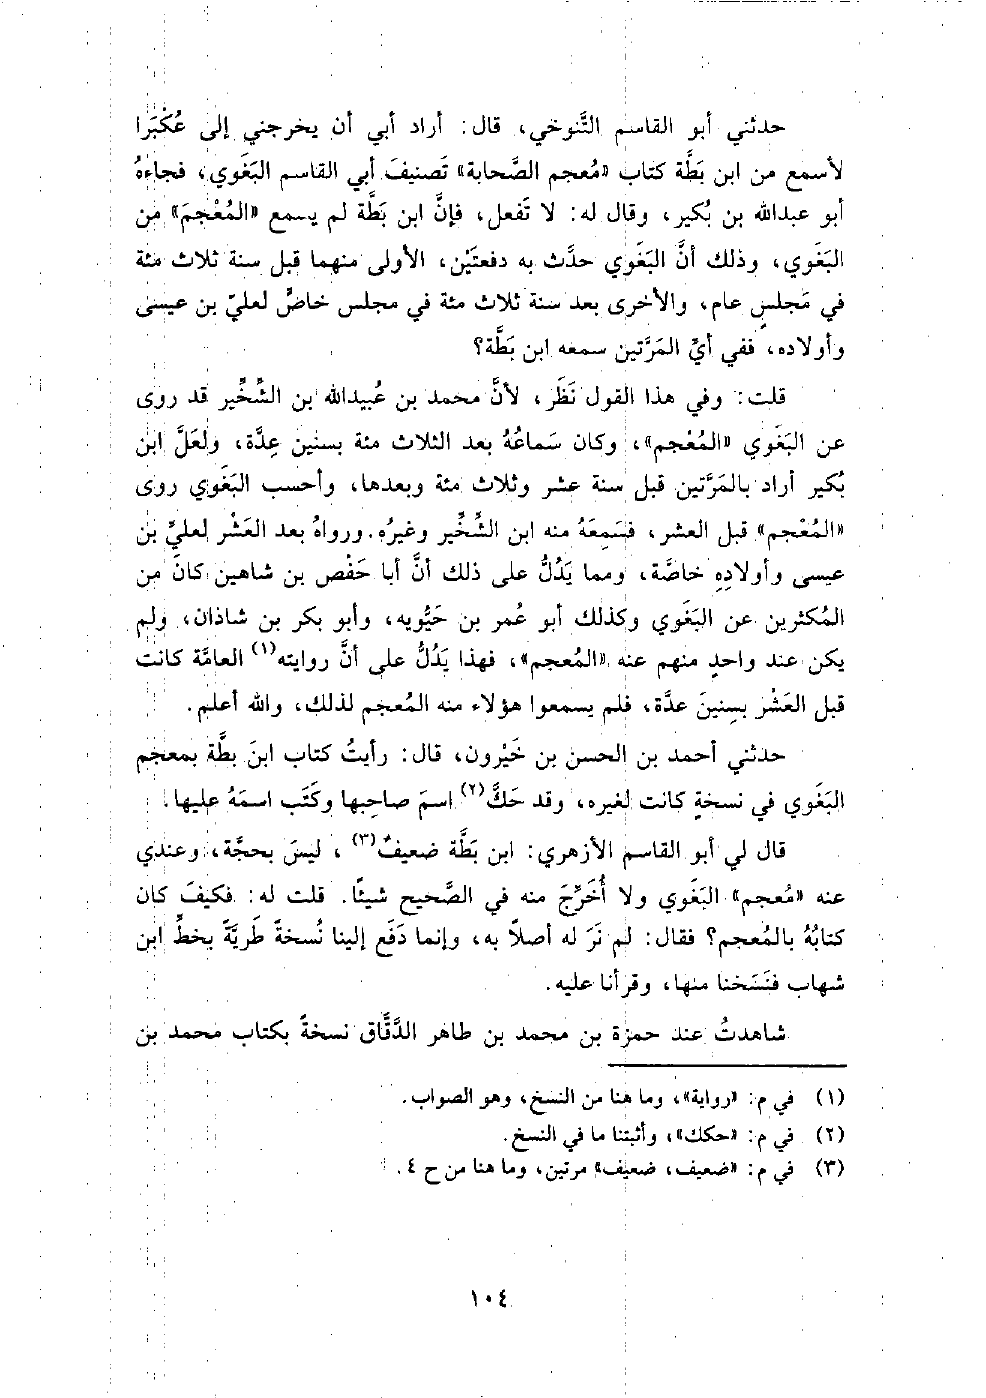 حدثني أبو القاسم التَّنوخي، قال: أراد أبي أن يخرجني إلى عُكْبَرا
لأسمع من ابن بَطَّة كتاب «مُعجم الصَّحابة» تَصنيفَ أبي القاسم البَغَوي، فجاءهُ
أبو عبدالله بن بُكير، وقال له: لا تَفعل، فإنَّ ابن بَطَّة لم يسمع «المُعْجمَ» من
البَغَوي، وذلك أنَّ البَغَوي حدَّث به دفعتَيْن، الأولى منهما قبل سنة ثلاث مئة
في مَجلسٍ عام، والأخرى بعد سنة ثلاث مئة في مجلس خاصٍّ لعليّ بن عيسى
وأولاده، ففي أيِّ المَرَّتين سمعه ابن بَطَّة؟
قلت: وفي هذا القول نَظَر، لأنَّ محمد بن عُبيدالله بن الشِّخِّير قد روى
عن البَغَوي «المُعْجم»، وكان سَماعُهُ بعد الثلاث مئة بسنين عِدَّة، ولعَلَّ ابن
بُكير أراد بالمَرَّتين قبل سنة عشر وثلاث مئة وبعدها، وأحسب البَغَوي روى
«المُعْجم» قبل العشر، فسَمِعَهُ منه ابن الشِّخِّير وغيرُه. ورواهُ بعد العَشْر لعليِّ بن
عيسى وأولادِهِ خاصَّة، ومما يَدُلُّ على ذلك أنَّ أبا حَفْص بن شاهين كانَ من
المُكثرين عن البَغَوي وكذلك أبو عُمر بن حَيُّويه، وأبو بكر بن شاذان، ولم
يكن عند واحدٍ منهم عنه «المُعجم»، فهذا يَدُلُّ على أنَّ روايته(١) العامَّة كانت
قبل العَشْر بسِنينَ عدَّة، فلم يسمعوا هؤلاء منه المُعجم لذلك، والله أعلم.
حدثني أحمد بن الحسن بن خَيْرون، قال: رأيتُ كتاب ابنَ بطَّة بمعجم
البَغَوي في نسخةٍ كانت لغيره، وقد حَكَّ(٢) اسمَ صاحبها وكَتَب اسمَهُ عليها.
قال لي أبو القاسم الأزهري: ابن بَطَّة ضعيفٌ(٣)، ليسَ بحجَّة، وعندي
عنه «مُعجم» البَغَوي ولا أُخَرِّجَ منه في الصَّحيح شيئًا. قلت له: فكيفَ كان
كتابُهُ بالمُعجم؟ فقال: لم نَرَ له أصلاً به، وإنما دَفَع إلينا نُسخةً طَريَّةً بخطِّ ابن
شهاب فنَسَخنا منها، وقرأنا عليه.
شاهدتُ عند حمزة بن محمد بن طاهر الدَّقَّاق نسخةً بكتاب محمد بن
(١) في م: «رواية»، وما هنا من النسخ، وهو الصواب.
(٢) في م: «حكك»، وأثبتنا ما في النسخ.
(٣) في م: «ضعيف، ضعيف» مرتين، وما هنا من ح ٤.
١٠٤